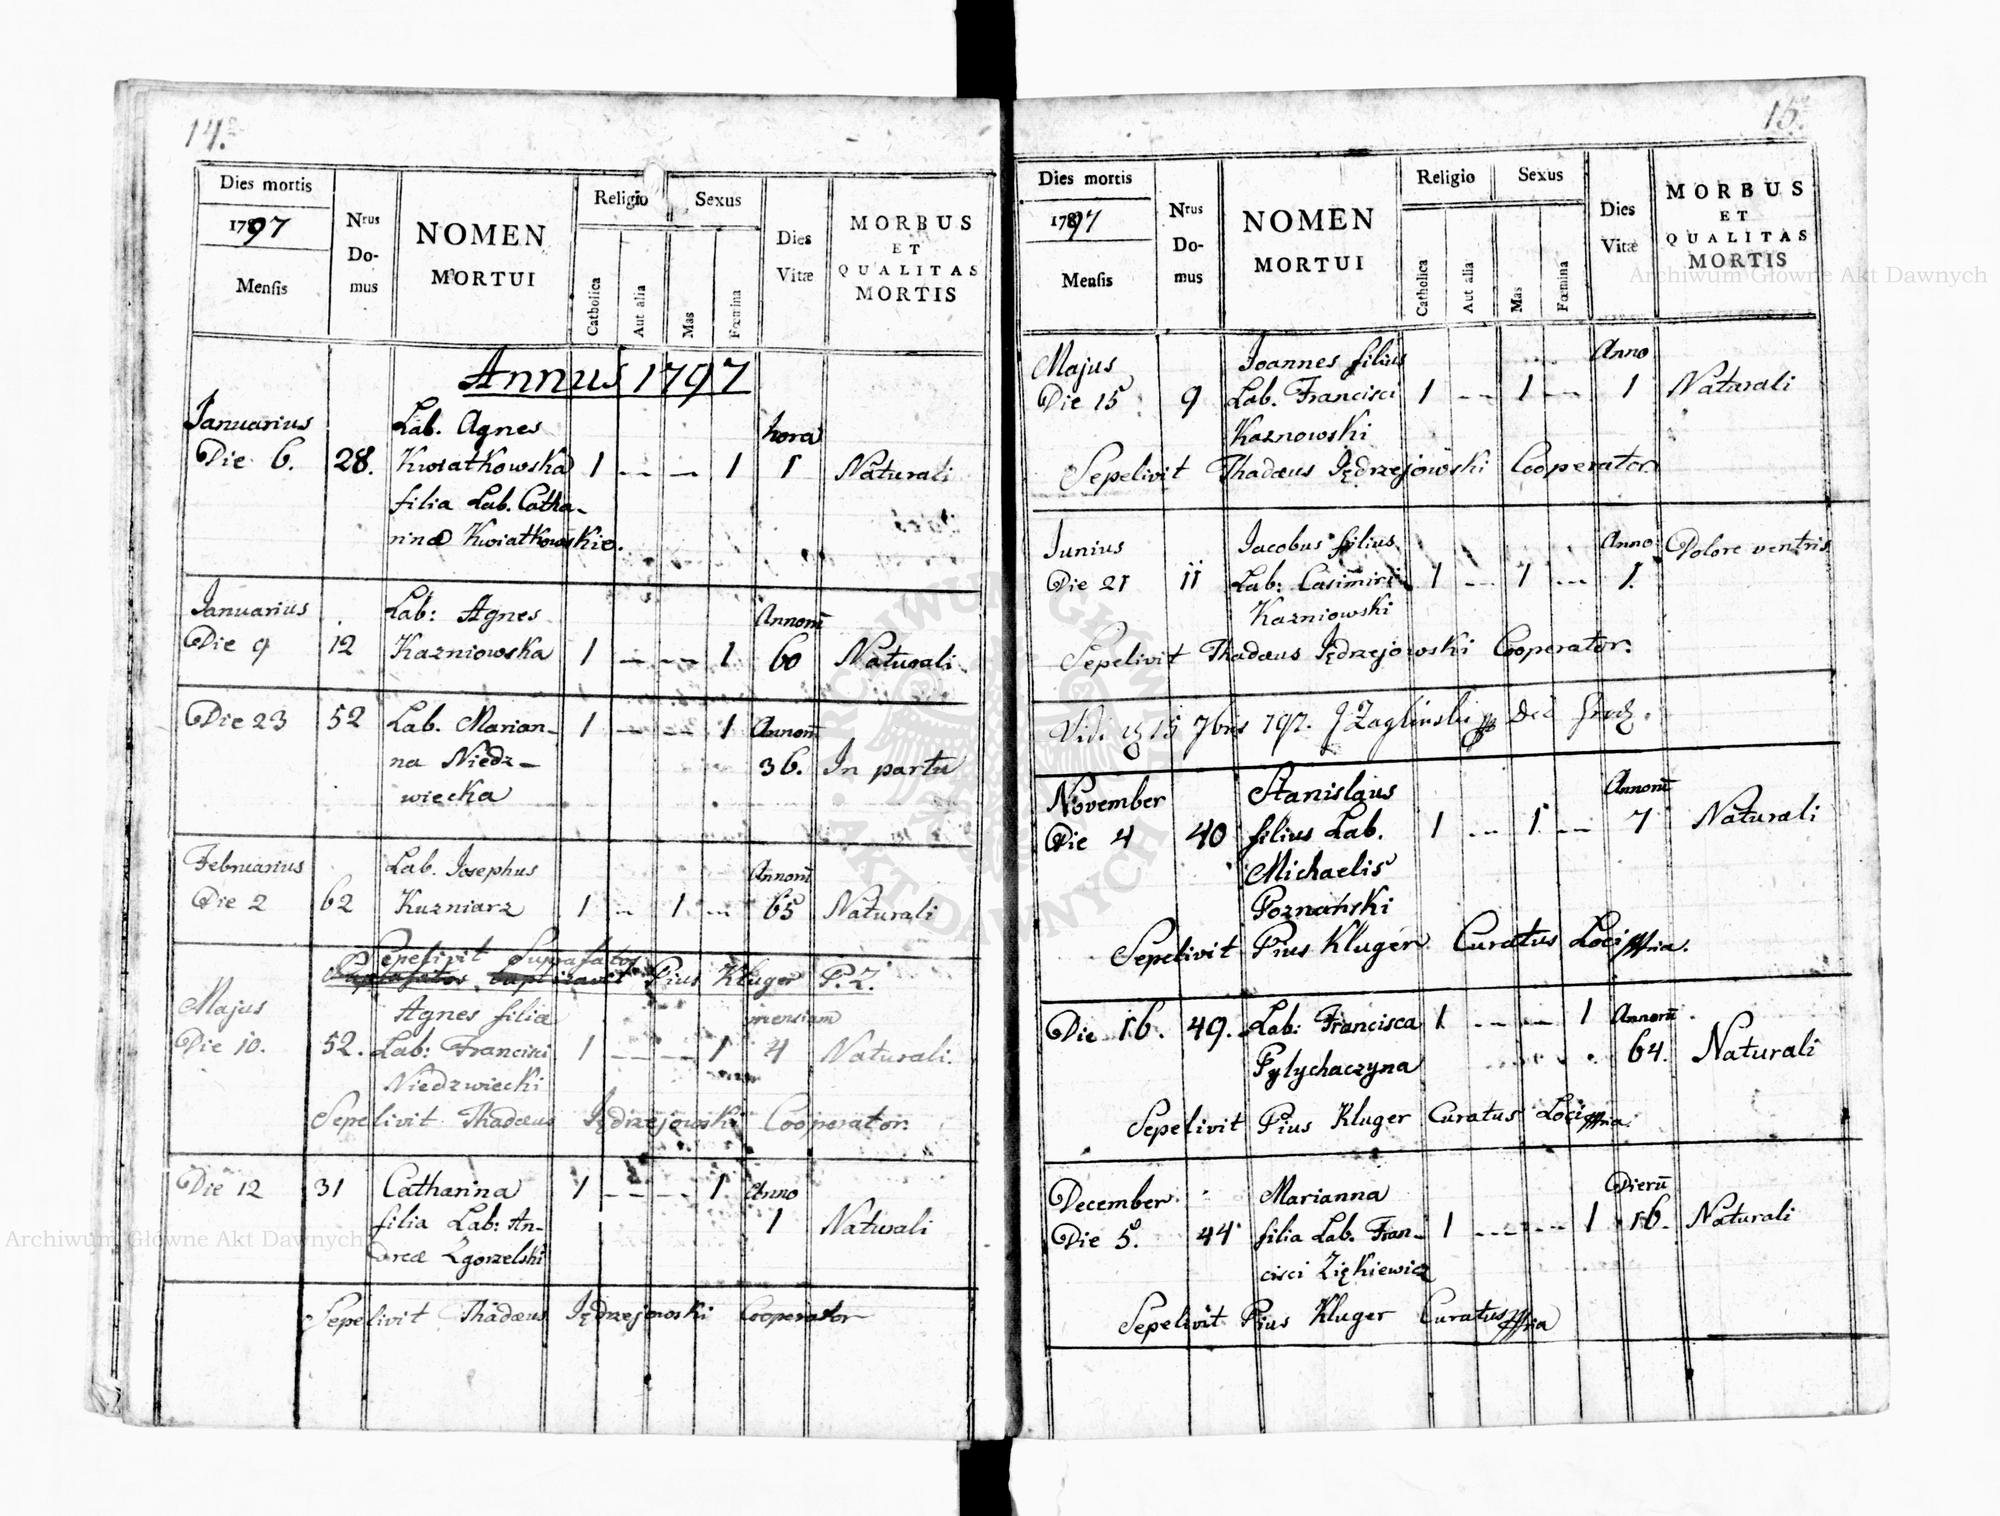 14.
Dies mortis
1797
Mensis
Nrus
Do-
mus
NOMEN
MORTUI
Religio
Catholica
Aut alia
Sexus
Mas
Fœmina
Dies
Vitæ
MORBUS
ET
QUALITAS
MORTIS
Annus 1797
Januarius Lab. Agnes hora
Die 6. 28. Kwiatkowska 1 -- -- 1 1 Naturali
filia Lab. Catha-
rinæ Kwiatkowskie.
Januarius Lab: Agnes Annorũ
Die 9 12 Kazniowska 1 -- -- 1 60 Naturali
Die 23 52 Lab. Marian- 1 -- -- 1 Annorũ
na Niedz- 36. In partu
wiecka
Februarius Lab. Josephus Annorũ
Die 2 62 Kuzniarz 1 -- 1 -- 65 Naturali
Sepelivit Suprafatos
Pius Kluger P. L.
Majus Agnes filia mensium
Die 10. 52. Lab: Francisci 1 -- -- 1 4 Naturali.
Niedzwiecki
Sepelivit Thadæus Jędrzejowski Cooperator.
Die 12 31 Catharina 1 -- -- 1 Anno
filia Lab: An- 1 Naturali
dreæ Zgorzelski
Sepelivit Thadæus Jędrzejowski Cooperator
15.
Dies mortis
1797
Mensis
Nrus
Do-
mus
NOMEN
MORTUI
Religio
Catholica
Aut alia
Sexus
Mas
Fœmina
Dies
Vitæ
MORBUS
ET
QUALITAS
MORTIS
Majus Joannes filius Anno
Die 15 9 Lab. Francisci 1 -- 1 -- 1 Naturali
Kaznowski
Sepelivit Thadæus Jędrzejowski Cooperator
Junius Jacobus filius Anno Dolore ventris
Die 21 11 Lab: Casimiri 1 -- 1 -- 1.
Kazniowski
Sepelivit Thadæus Jędrzejowski Cooperator.
Vidi 15 7bris 797. J Zagliński
November Stanislaus Annorũ
Die 4 40 filius Lab. 1 -- 1 -- 7 Naturali
Michaelis
Poznański
Sepelivit Pius Kluger Curatus Loci mpria.
Die 16. 49. Lab: Francisca 1 -- -- 1 Annorũ
Pylychaczyna 64. Naturali
Sepelivit Pius Kluger Curatus Loci mpria.
December Marianna Dierũ
Die 5. 44 filia Lab. Fran- 1 -- -- 1 16. Naturali
cisci Ziękiewicz
Sepelivit Pius Kluger Curatus mpria
Archiwum Główne Akt Dawnych
Archiwum Główne Akt Dawnych
ARCHIWUM GŁÓWNE
AKT DAWNYCH